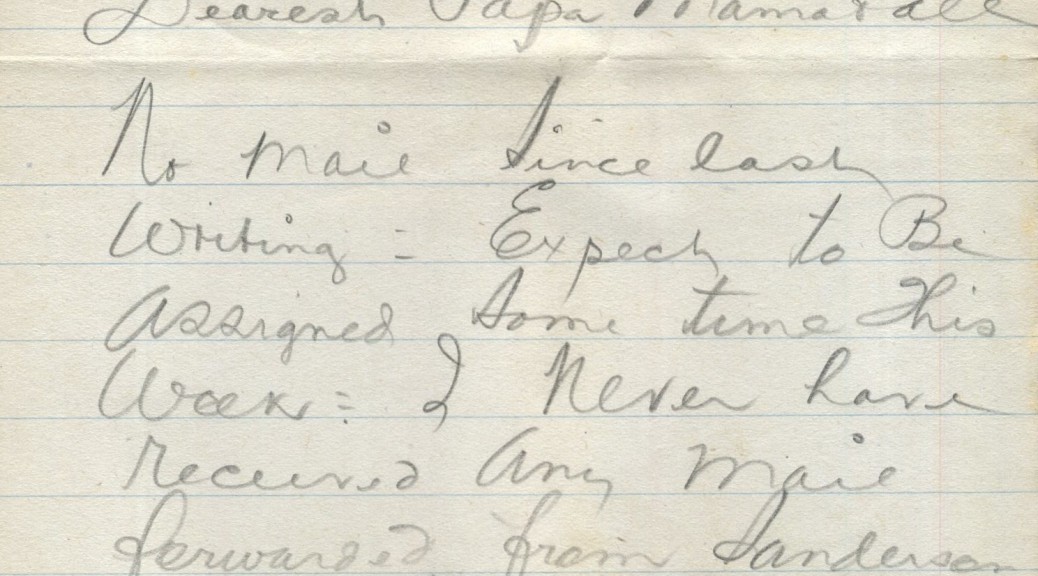 Dearest Papa Mama & all
No mail Since last
Writing = Expect to Be
Assigned Some time This
Week = I Never have
received Any mail
forwarded from Sanderson